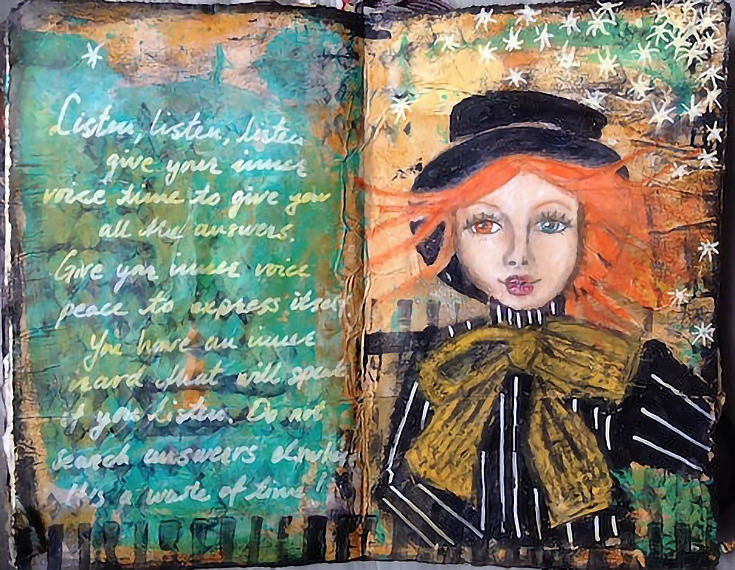 Listen, listen, listen
give your inner
voice time to give you
all the answers.
Give your inner voice
peace to express itself
You have an inner
that will speak
if you listen. Do not
search answers elsewhere
this a waste of time!